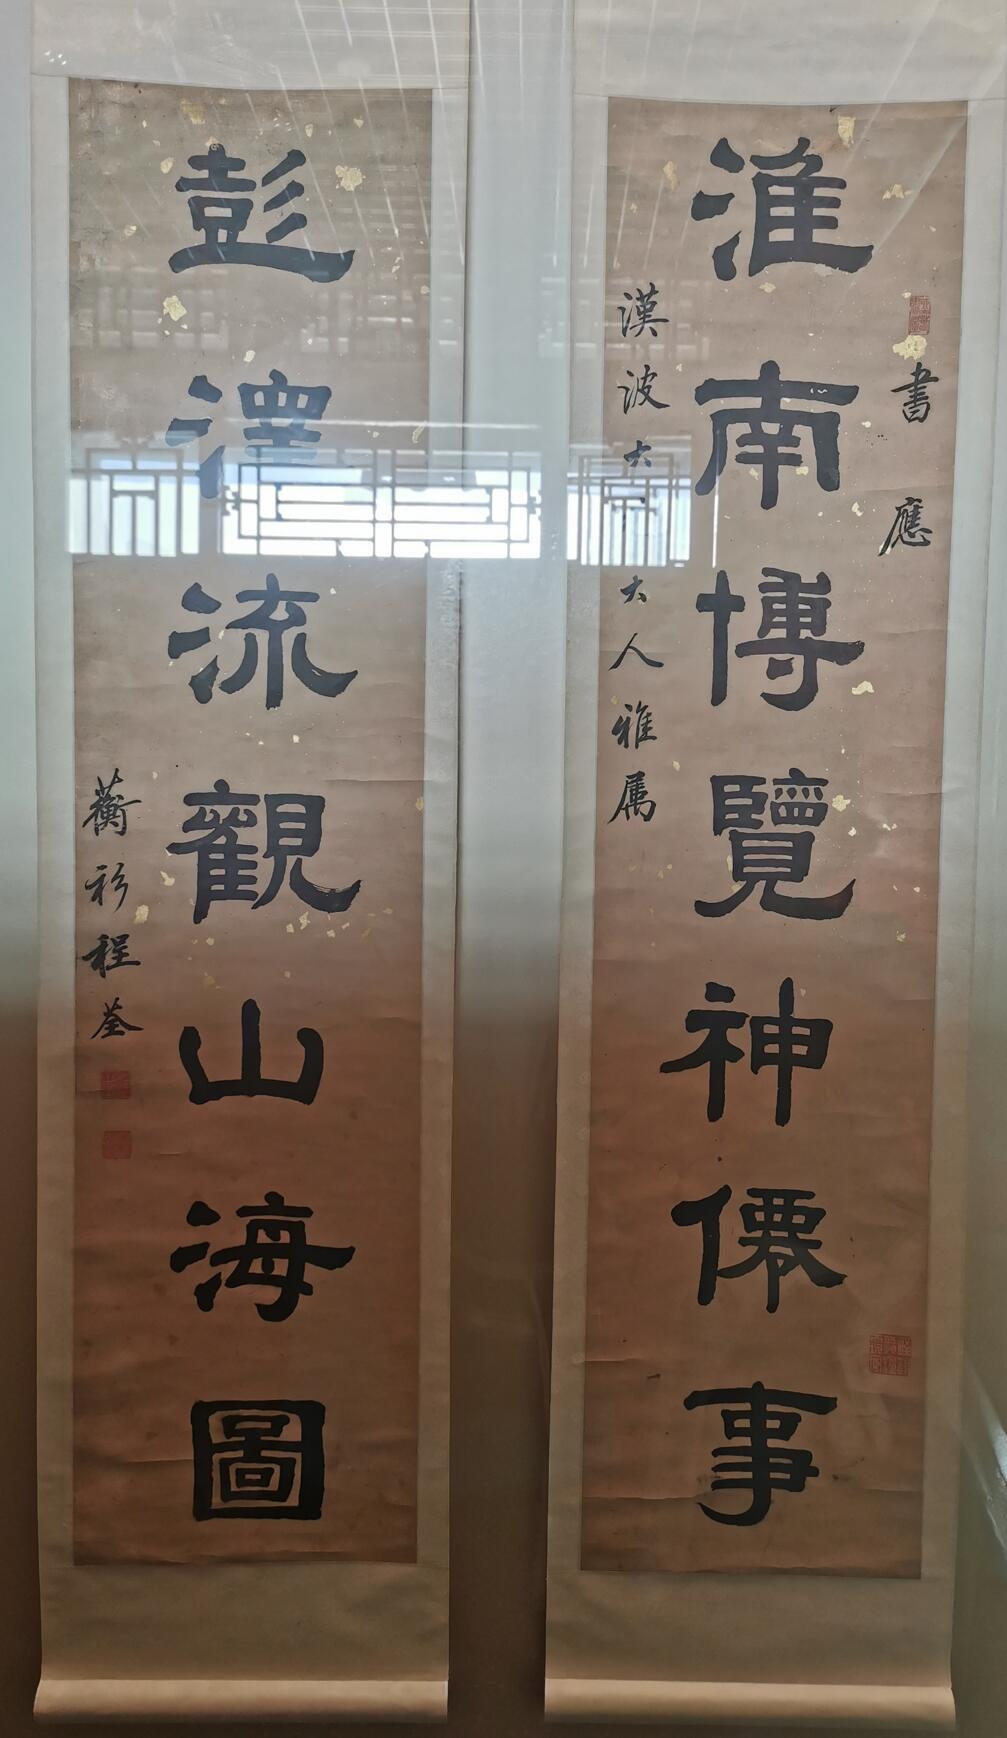 書應
淮南博覽神僊事
漢波大 大人雅属
彭澤流觀山海圖
蘅衫程荃